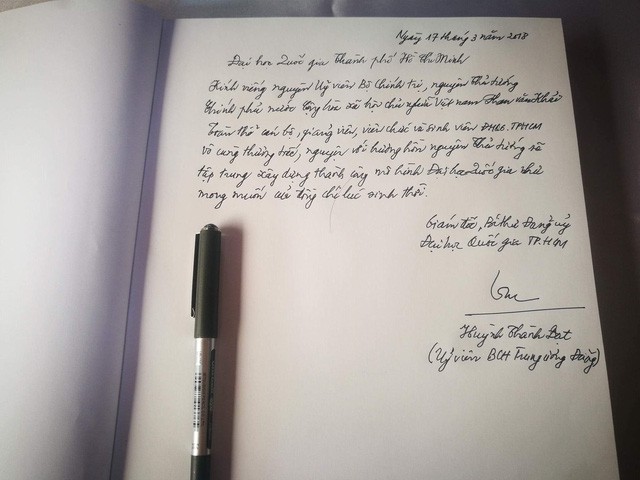 Ngày 17 tháng 3 năm 2018
Đại học Quốc gia Thành phố Hồ Chí Minh
Kính viếng nguyên Uỷ viên Bộ Chính trị, nguyên Thủ tướng
Chính phủ nước Cộng hòa xã hội chủ nghĩa Việt nam Phan Văn Khải
Toàn thể cán bộ, giảng viên, viên chức và sinh viên ĐHQG. TPHCM
vô cùng thương tiếc, nguyện với hương hồn nguyên Thủ tướng sẽ
tập trung xây dựng thành công mô hình Đại học Quốc gia như
mong muốn của đồng chí lúc sinh thời.
Giám đốc, Bí thư Đảng ủy
Đại học Quốc gia TP.HCM
Huỳnh Thành Đạt
(Uỷ viên BCH Trung ương Đảng)